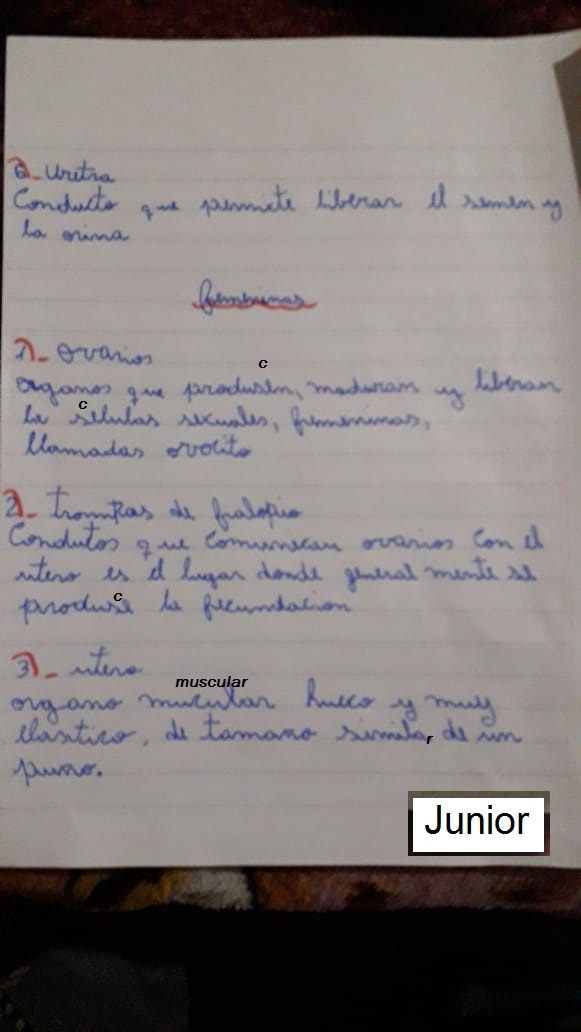 6_ Uretra
Conducto que permite liberar el semen y
la orina
femeninas
1)_ Ovarios
c
organos que produsen, maduran y liberan
c
la selulas sexuales, femeninas,
llamadas ovocito
2)_ trompas de falopio
Condutos que comunecan ovarios con el
utero es el lugar donde general mente se
produse la fecundacion
c
3)_ utero
muscular
organo mucular hueco y muy
elastico, de tamaño simila de un
r
puño.
Junior